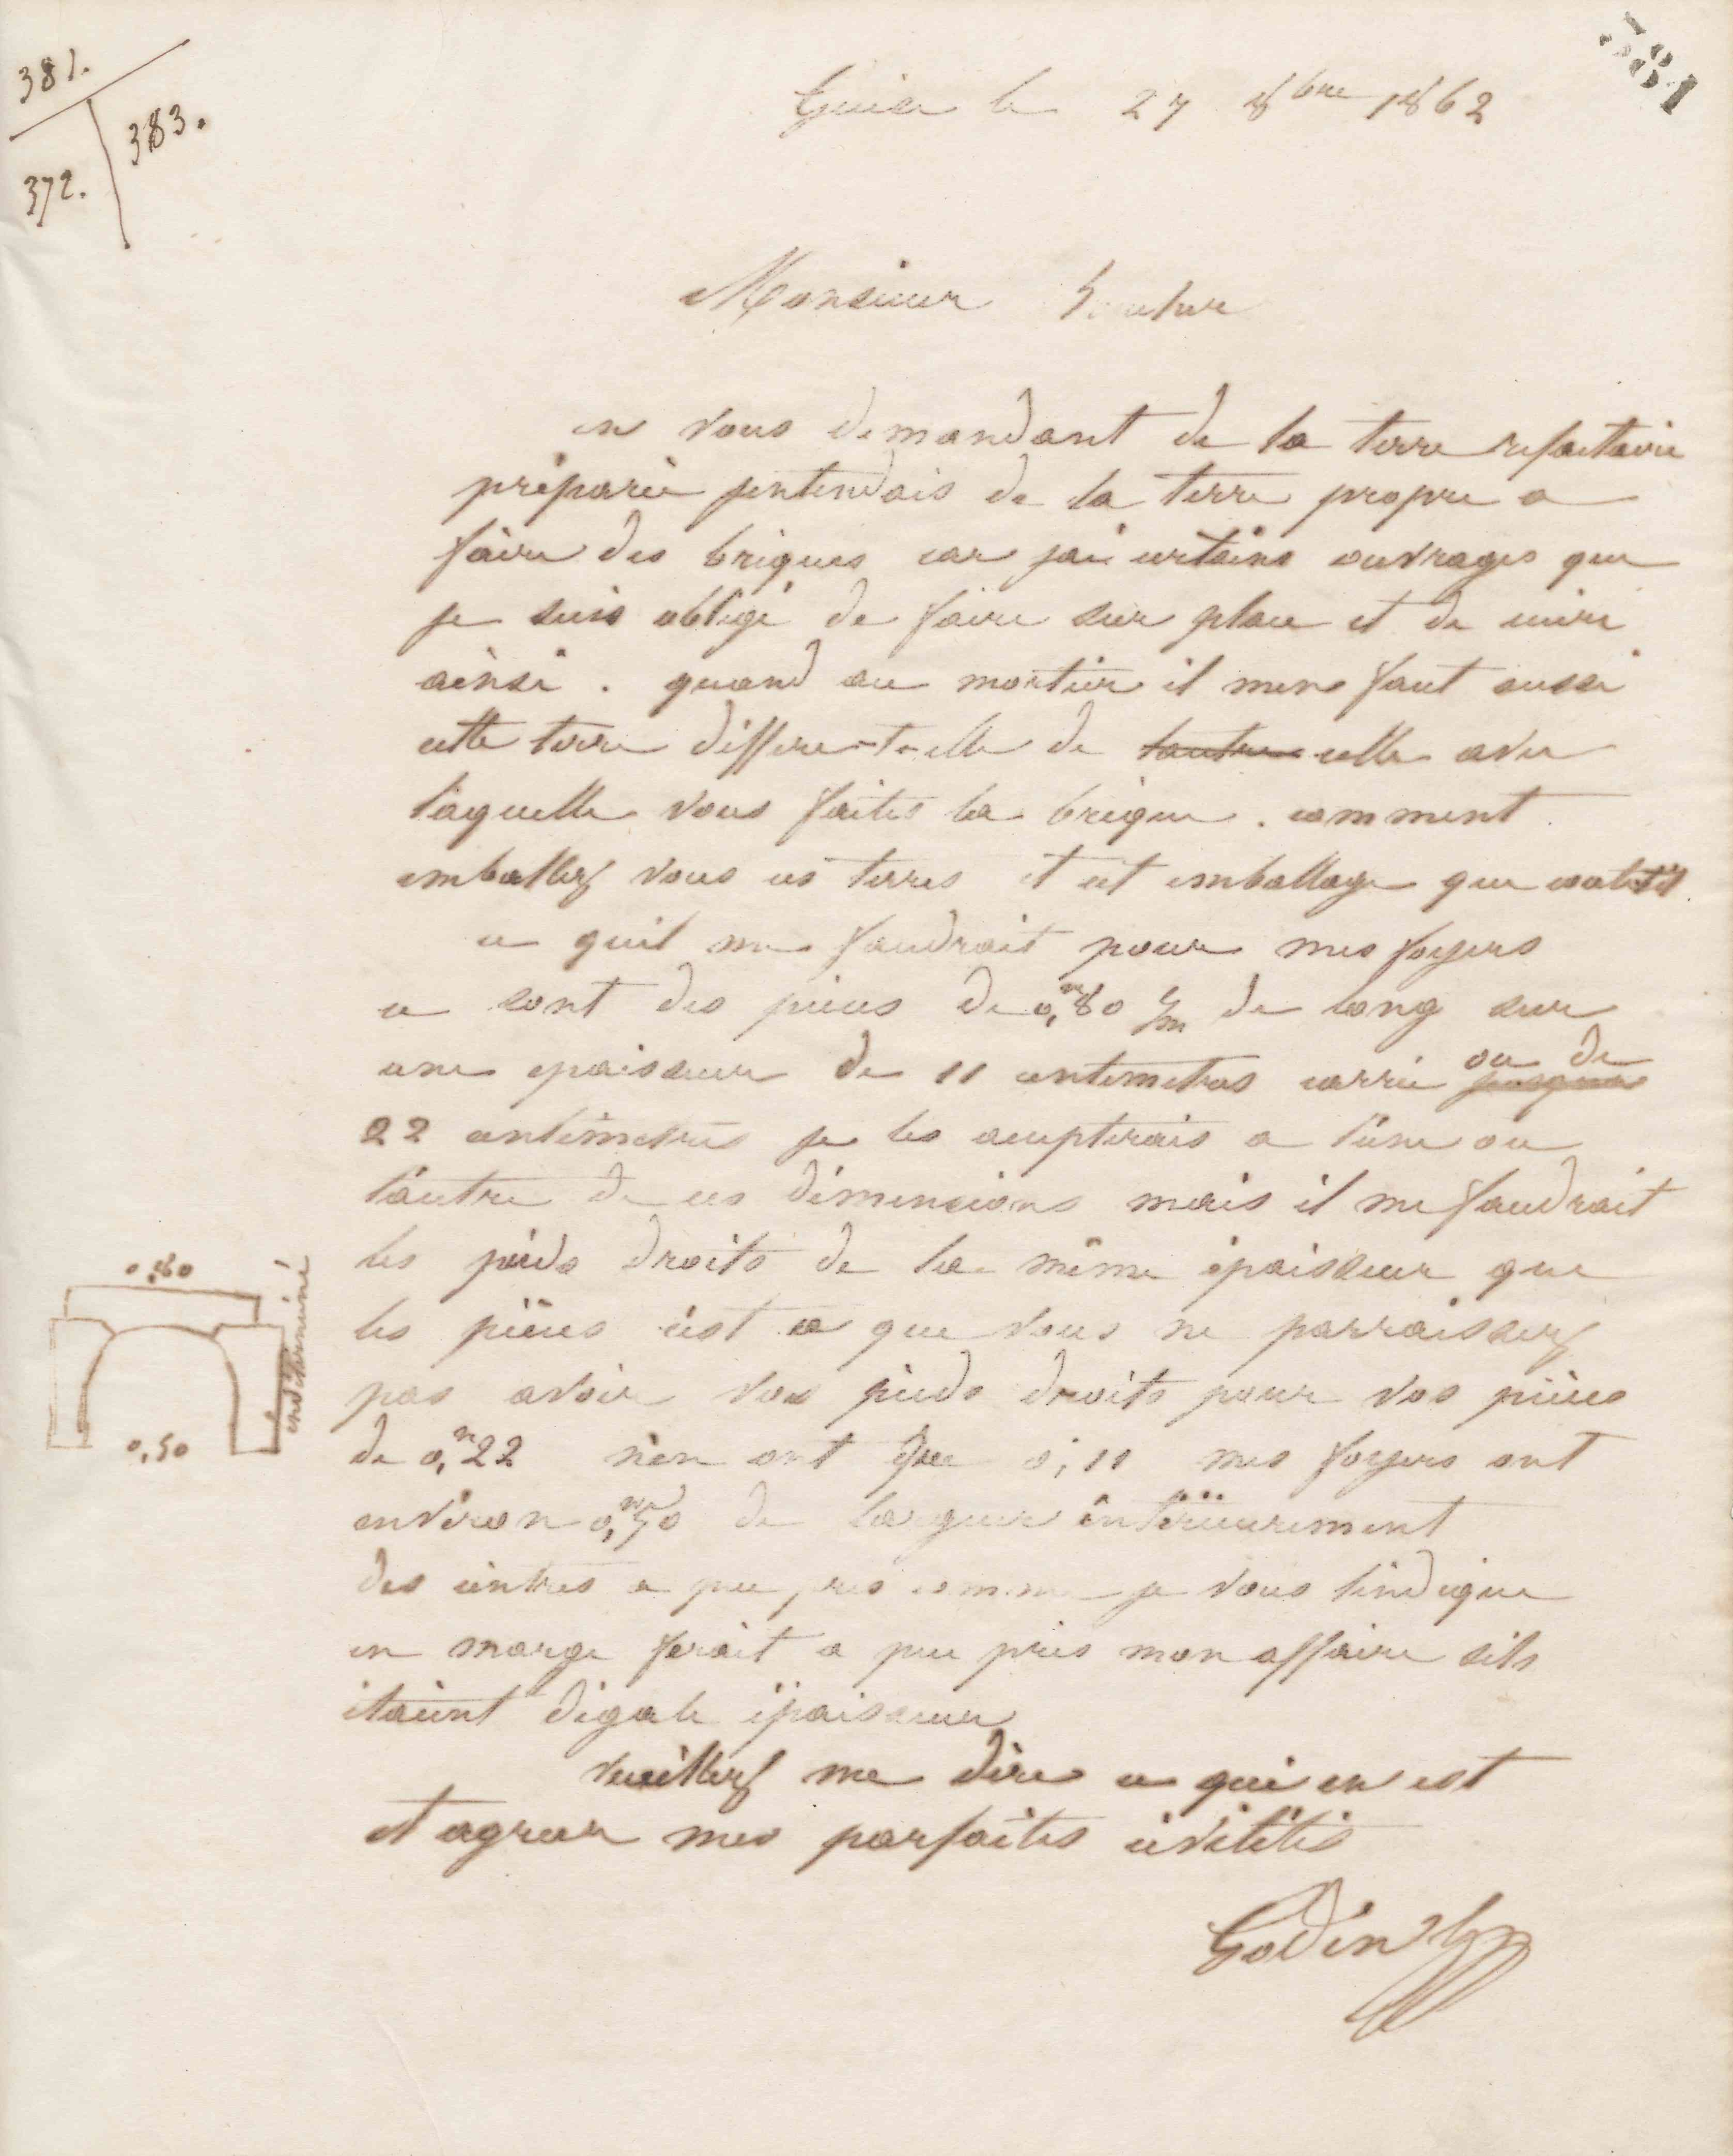 381.
383.
372.
381
Guise le 27 8bre 1862
Monsieur
en vous demandant de la terre refractaire
préparée jentendais de la terre propre a
faire des briques car jai certains ouvrages que
je suis obligé de faire sur place et de cuire
ainsi . quand au mortier il men faut aussi
cette terre differe-t-elle de lautre celle avec
laquelle vous faites la brique . comment
emballez vous ces terres et cet emballage que coute til
ce quil me faudrait pour mes foyers
ce sont des pièces de 0,m80 c/m de long sur
une epaisseur de 11 centimetres carrée ou de
22 centimetres je les accepterais a l'une ou
l'autre de ces dimensions mais il me faudrait
les pieds droits de la même épaisseur que
les pièces cest ce que vous ne parraissez
pas avoir vos pieds droits pour vos pièces
de 0,m22 n'en ont que 0,11 mes foyers ont
environ 0,m50 de largeur intérieurement
des cintres a peu près comme je vous l'indique
en marge ferait a peu près mon affaire sils
étaient dégale épaisseur
veuillez me dire ce qui en est
et agréer mes parfaites civilités
Godin
0,80
indéterminé
0,50